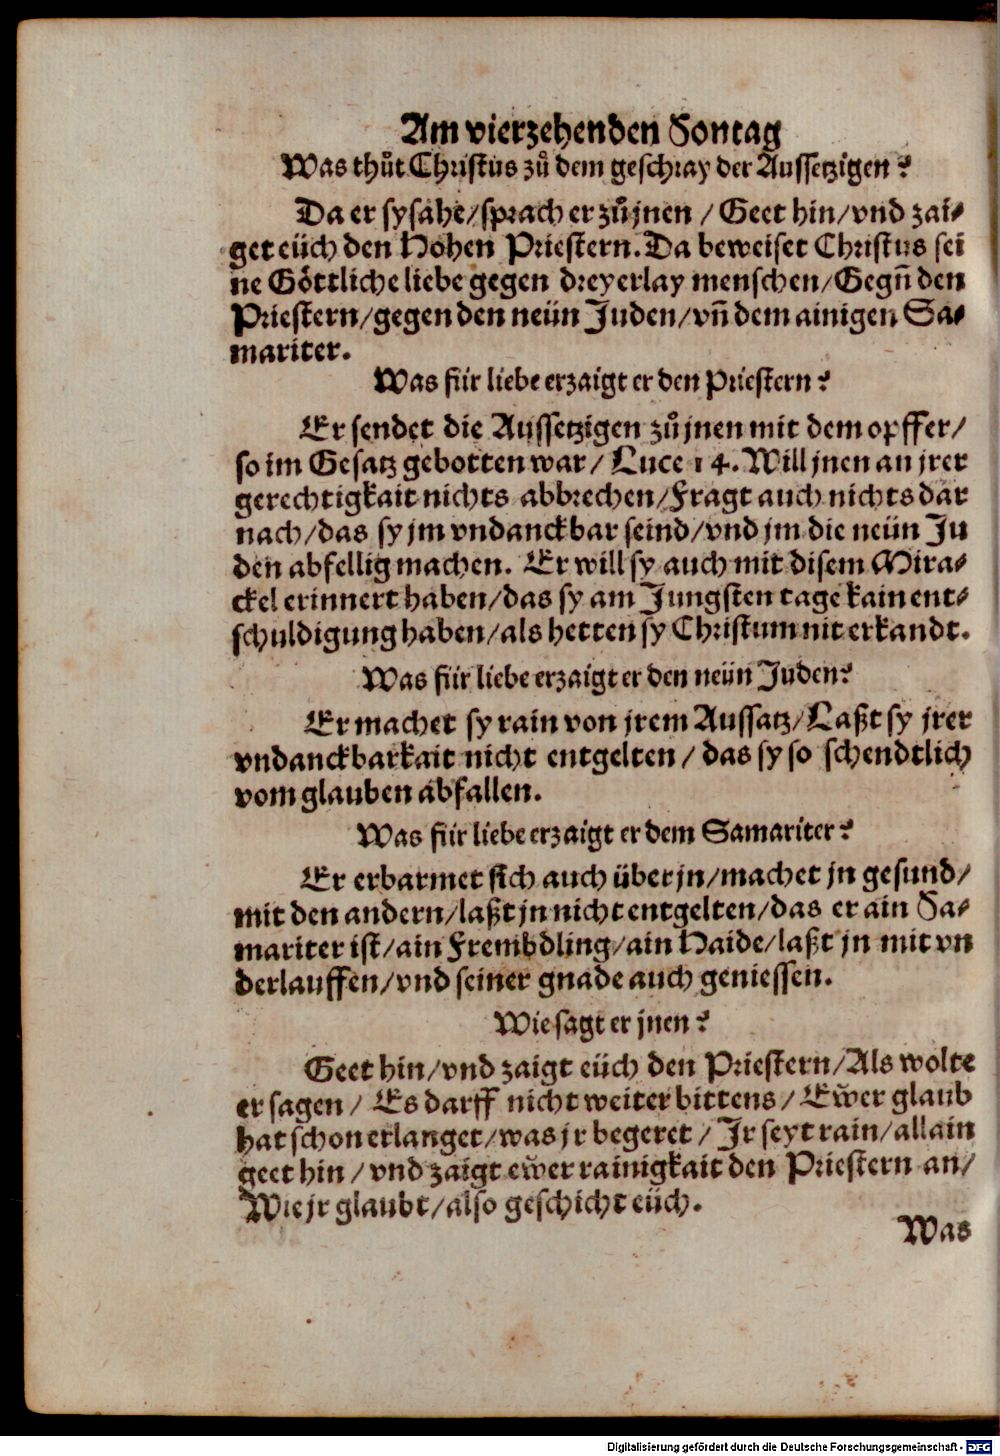 Am vierzehenden Sontag
Was thůt Christus zů dem geschray der Aussetzigen?
Da er sy sahe/sprach er zů jnen / Geet hin/vnd zai-
get eüch den Hohen Priestern. Da beweiset Christus sei
ne Göttliche liebe gegen dreyerlay menschen/Gegñ den
Priestern/gegen den neün Juden/vñ dem ainigen Sa-
mariter.
Was für liebe erzaigt er den Priestern?
Er sendet die Aussetzigen zů jnen mit dem opffer/
so im Gesatz gebotten war/ Luce 14. Will jnen an jrer
gerechtigkait nichts abbrechen/Fragt auch nichts dar
nach/das sy jm vndanckbar seind/vnd jm die neün Ju
den abfellig machen. Er will sy auch mit disem Mira-
ckel erinnert haben/das sy am Jungsten tage kain ent-
schuldigung haben/als hetten sy Christum nit erkandt.
Was für liebe erzaigt er den neün Juden?
Er machet sy rain von jrem Aussatz/Laßt sy jrer
vndanckbarkait nicht entgelten/ das sy so schendtlich
vom glauben abfallen.
Was für liebe erzaigt er dem Samariter?
Er erbarmet sich auch über jn/machet jn gesund/
mit den andern/laßt jn nicht entgelten/das er ain Sa-
mariter ist/ain Frembdling/ain Haide/laßt jn mit vn
derlauffen/vnd seiner gnade auch geniessen.
Wie sagt er jnen?
Geet hin/vnd zaigt eüch den Priestern/Als wolte
er sagen/ Es darff nicht weiter bittens/ Ew̃er glaub
hat schon erlanget/was jr begeret/ Jr seyt rain/allain
geet hin/ vnd zaigt ew̃er rainigkait den Priestern an/
Wie jr glaubt/also geschicht eüch.
Was
Digitalisierung gefördert durch die Deutsche Forschungsgemeinschaft - DFG